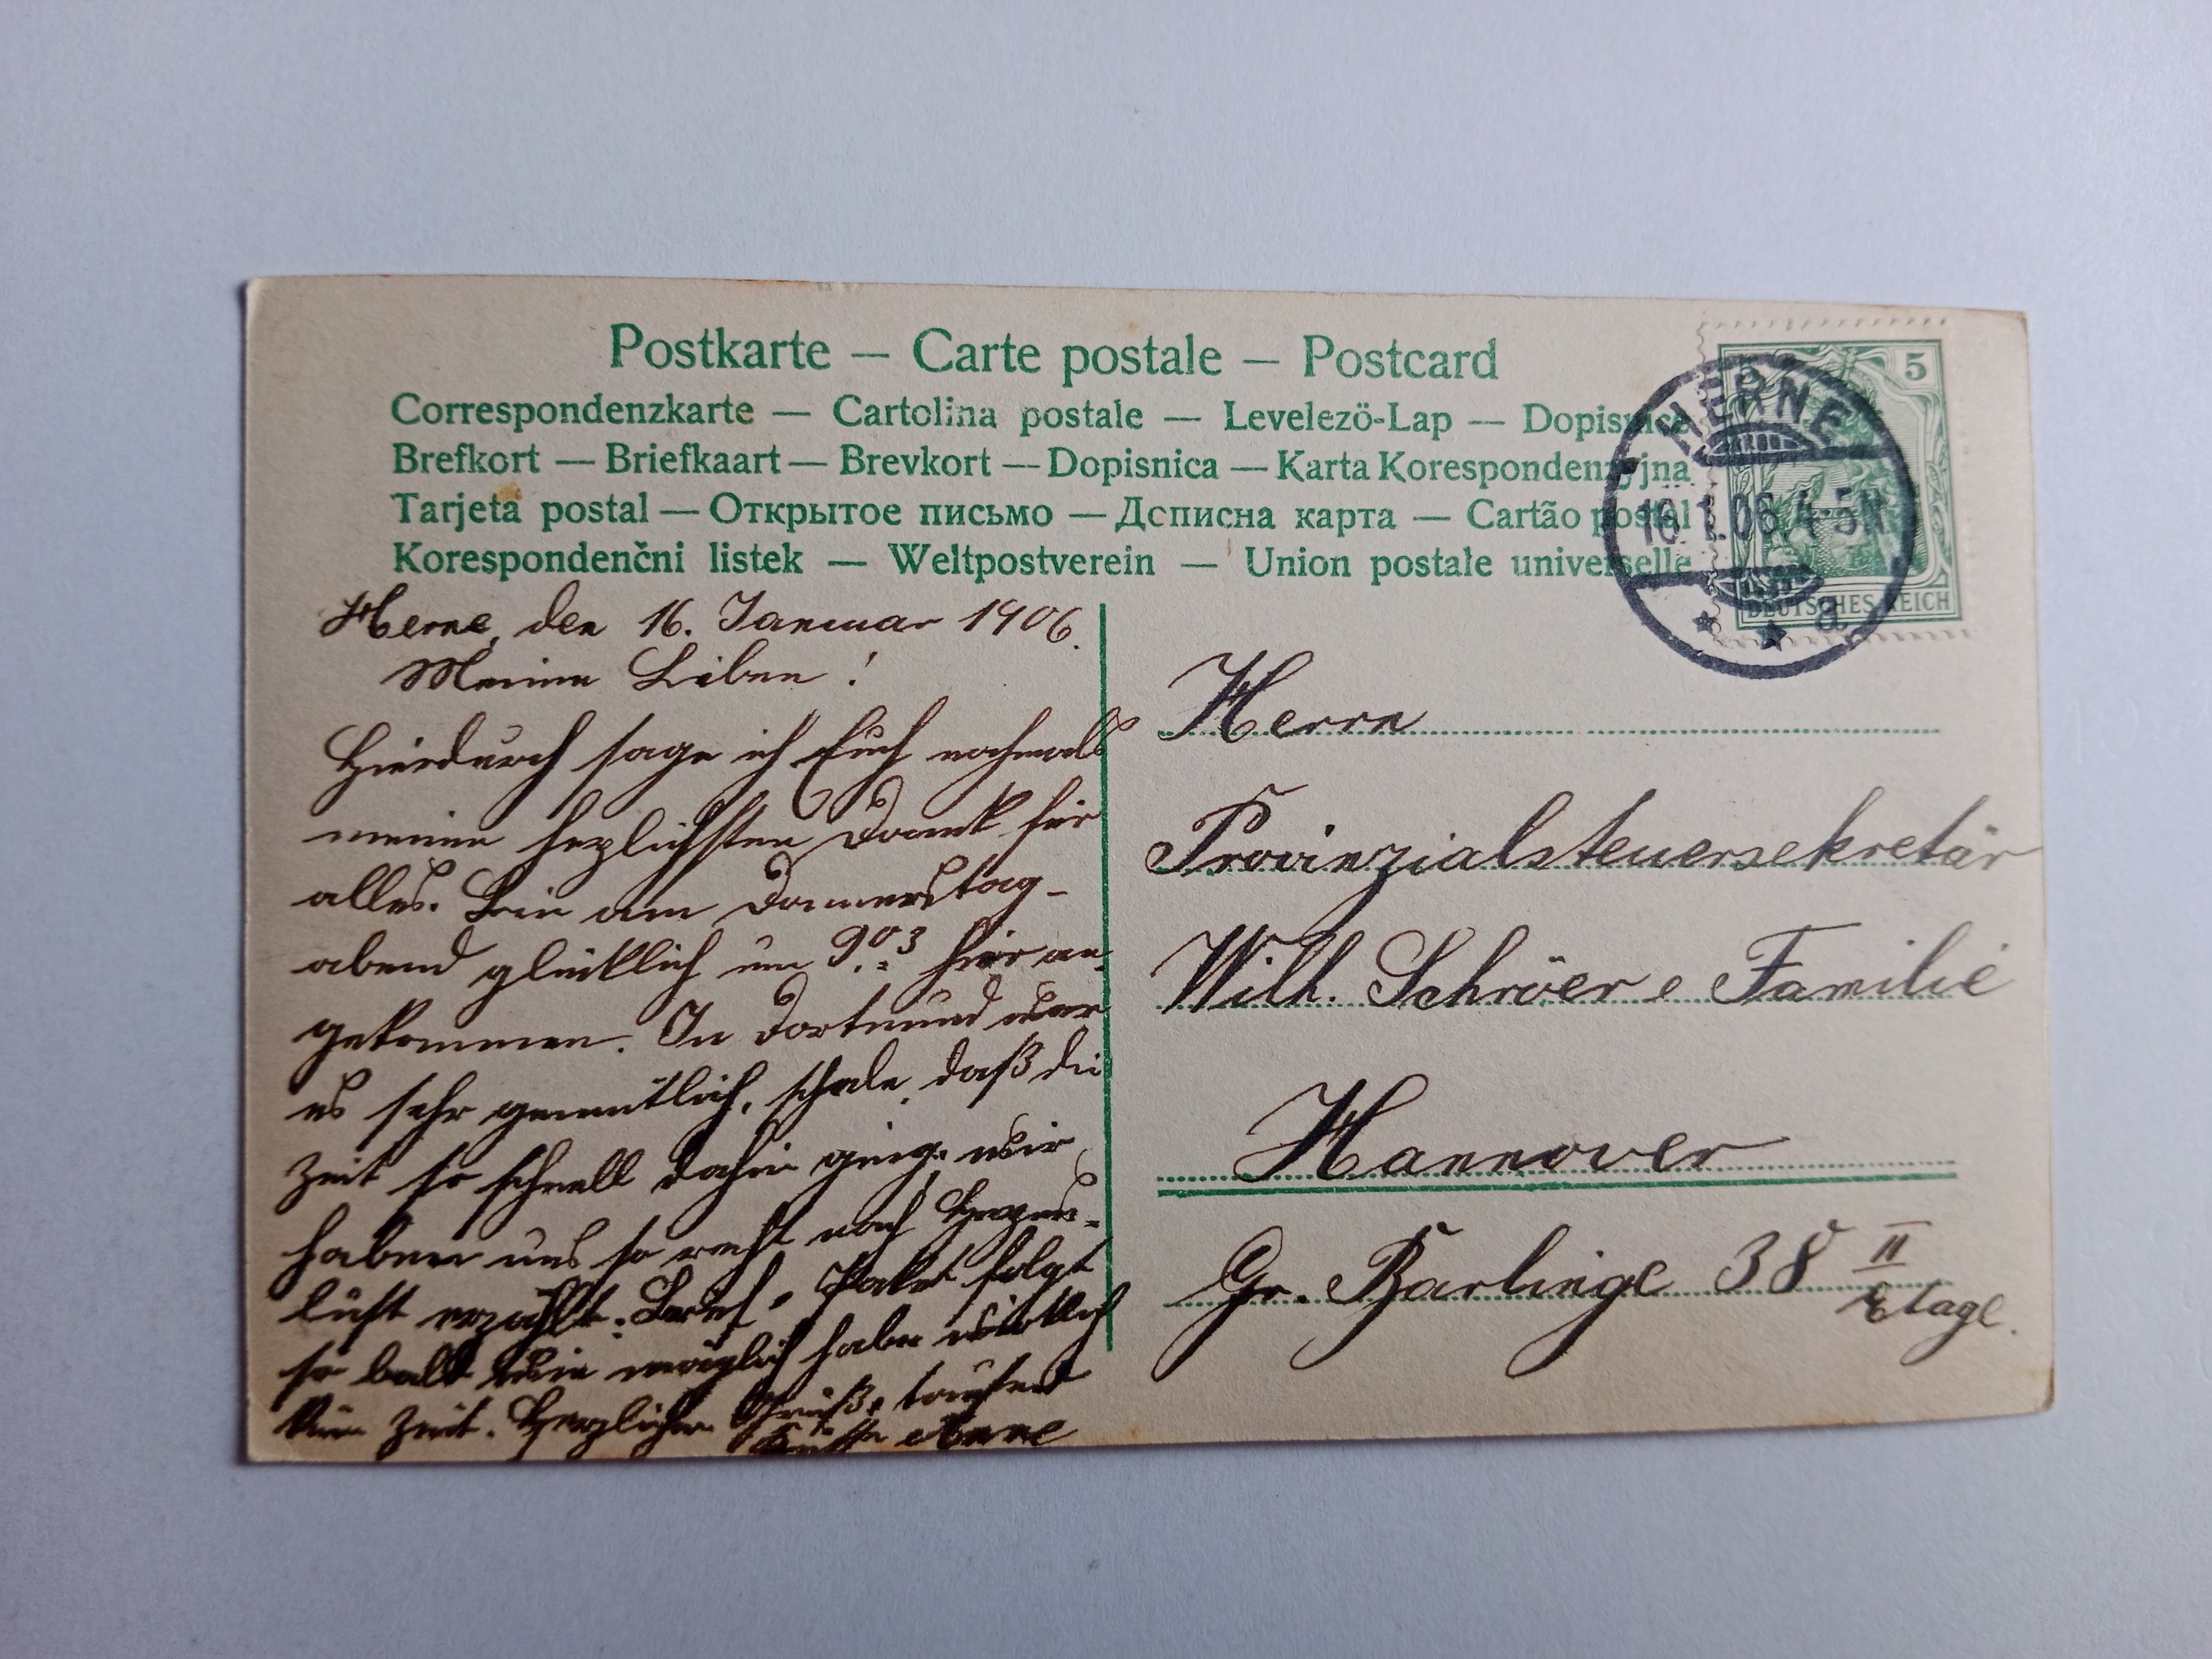 Postkarte — Carte postale — Postcard
Correspondenzkarte — Cartolina postale — Levelező-Lap — Dopisnice
Brefkort — Briefkaart — Brevkort — Dopisnica — Karta Korespondenzyjna
Tarjeta postal — Открытое письмо — Дописна карта — Cartão postal
Korespondenčni listek — Weltpostverein — Union postale universelle
5
HERNE
16.1.06.4-5N
* * a
DEUTSCHES REICH
Herne, den 16. Januar 1906.
Meine Lieben!
Hierdurch sage ich Euch nochmals
meinen herzlichsten Dank für
alles. Bin am Donnerstag-
abend glücklich um 9.03 hier an-
gekommen. In Dortmund war
es sehr gemütlich, schade, daß die
Zeit so schnell dahin ging, wir
haben uns so recht nach Herzens-
lust erzählt. Brief, Paket folgt
so bald wie möglich habe wirklich
keine Zeit. Herzliche Grüße, tausend
Küsse Anne
Herrn
Provinzialsteuersekretär
Wilh. Schröer & Familie
Hannover
Gr. Barlinge 38 II
Etage.